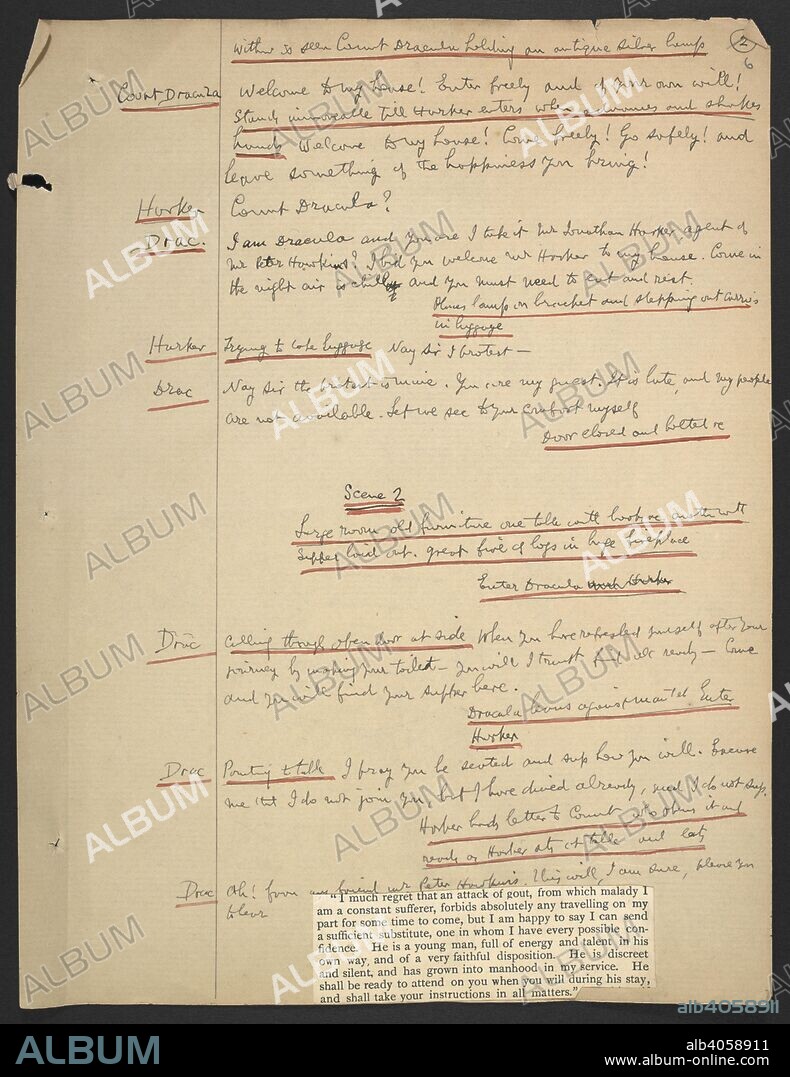 within is seen Count Dracula holding an antique silver lamp
2
6
Count Dracula Welcome to my house! Enter freely and of your own will!
Stands immovable till Harker enters when and shakes
hands Welcome to my house! Come freely! Go safely! and
leave something of the happiness you bring!
Harker Count Dracula?
Drac. I am Dracula and you are I take it Mr Jonathan Harker agent of
Mr Peter Hawkins? I bid you welcome Mr Harker to my house. Come in
the night air is chill and you must need to eat and rest.
Places lamp on bracket and stepping out carries
in luggage
Harker Trying to take luggage Nay Sir I protest —
Drac Nay Sir the protest is mine. You are my guest. It is late, and my people
are not available. Let me see to your comfort myself
Door closed and bolted &c
Scene 2
Large room old furniture one table with books &c another with
supper laid out. great fire of logs in huge fireplace
Enter Dracula and Harker
Drac Calling through open door at side When you have refreshed yourself after your
journey by making your toilet — you will I trust find all ready — Come
and you will find your supper here.
Dracula leans against mantel Enter
Harker
Drac Pointing to table I pray you be seated and sup how you will. Excuse
me that I do not join you; but I have dined already, and I do not sup.
Harker hands letter to Count who opens it and
reads as Harker sits at table and eats
Drac Ah! from my friend Mr Peter Hawkins. This will, I am sure, please you
to hear
"I much regret that an attack of gout, from which malady I
am a constant sufferer, forbids absolutely any travelling on my
part for some time to come, but I am happy to say I can send
a sufficient substitute, one in whom I have every possible con-
fidence. He is a young man, full of energy and talent in his
own way, and of a very faithful disposition. He is discreet
and silent, and has grown into manhood in my service. He
shall be ready to attend on you when you will during his stay,
and shall take your instructions in all matters."
alb4058911
ALBUM
alb4058911
www.album-online.com